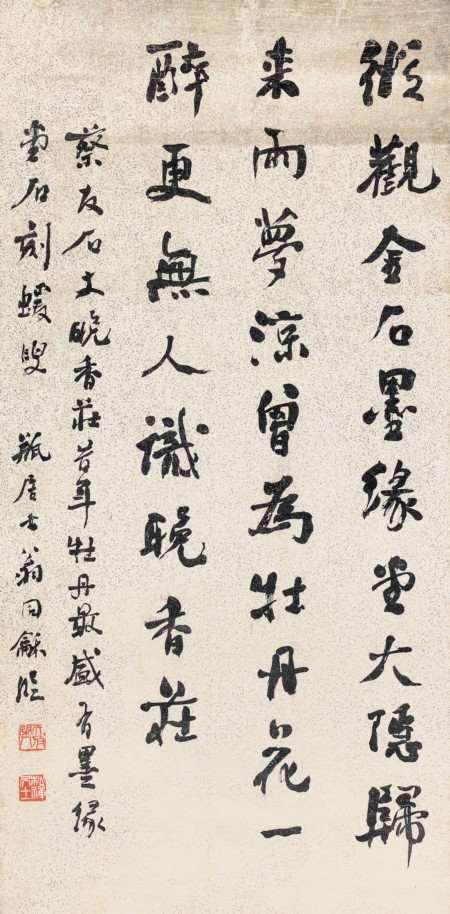 縱觀金石墨緣堂大隱歸
來雨夢涼曾為牡丹花一
醉更無人識晚香莊
蔡友石丈晚香莊昔年牡丹最盛有墨緣
堂石刻 瓶居士翁同龢